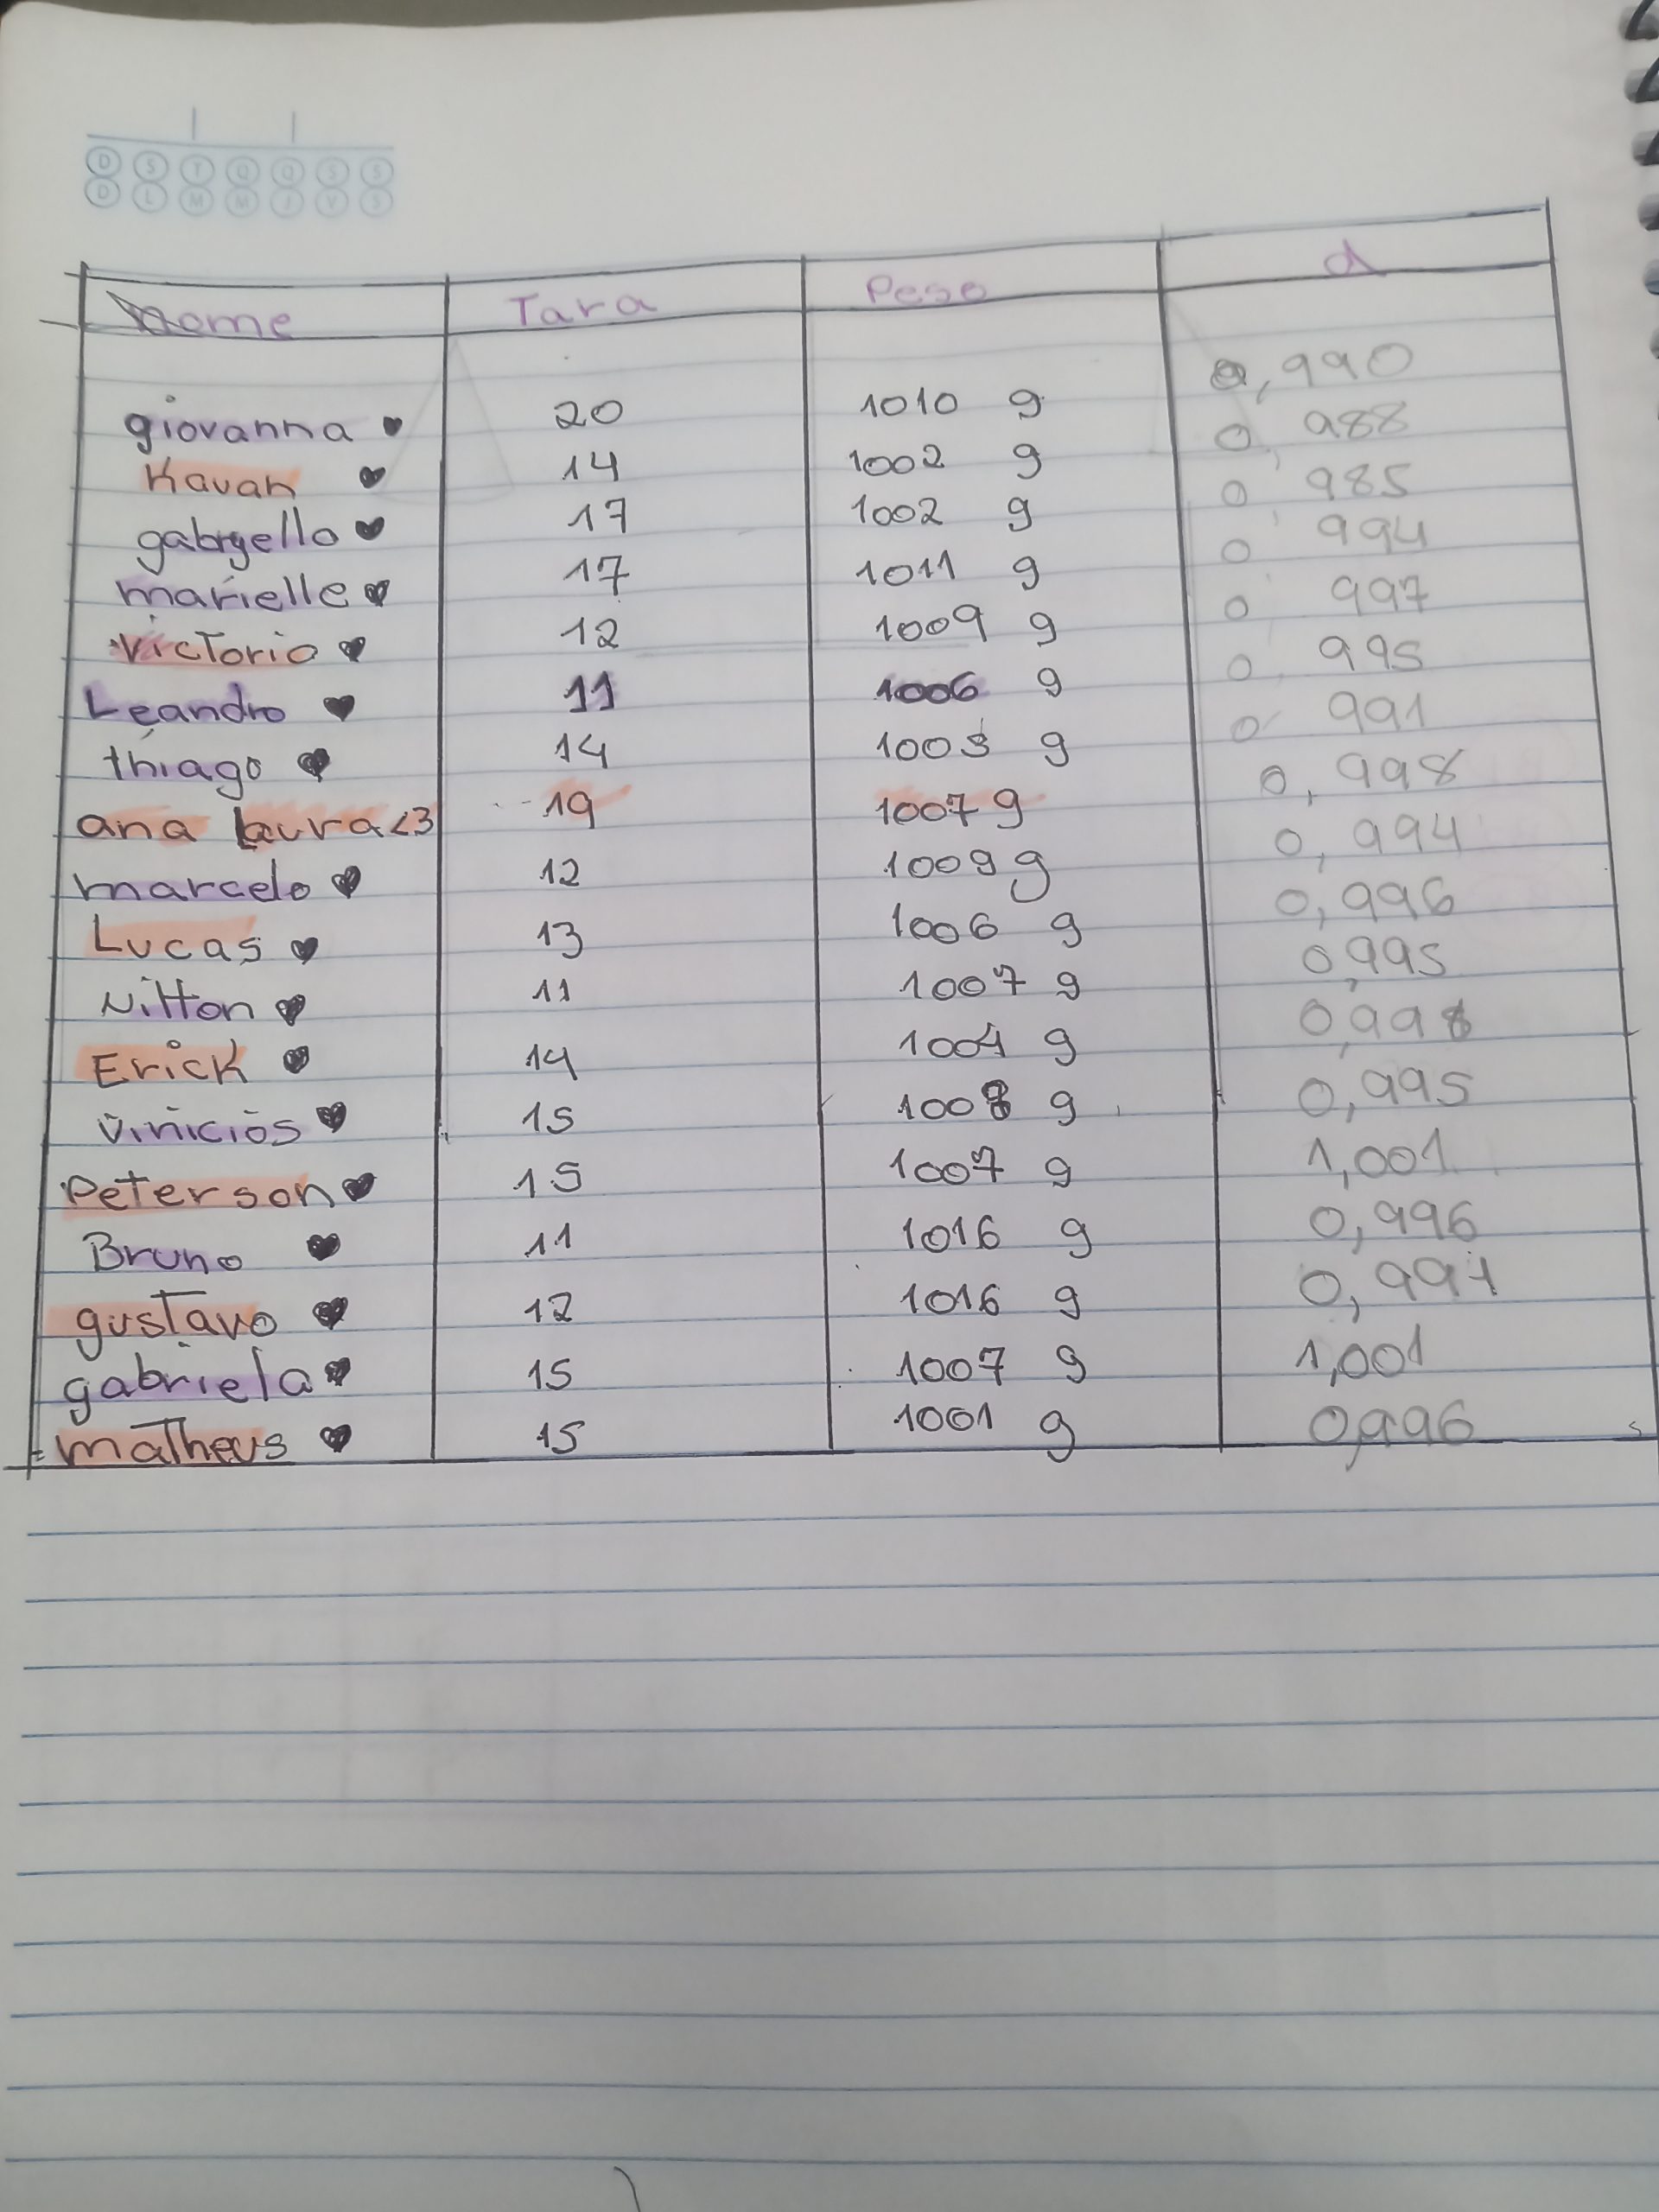 D S T Q Q S S
D L M M J V S
Nome Tara Peso d
giovanna 20 1010 g 0,990
Kauah 14 1002 g 0,988
gabryello 17 1002 g 0,985
marielle 17 1011 g 0,994
Victorio 12 1009 g 0,997
Leandro 11 1006 g 0,995
thiago 14 1005 g 0,991
ana Laura<3 19 1007 g 0,998
marcelo 12 1009 g 0,994
Lucas 13 1006 g 0,996
Nitton 11 1007 g 0,995
Erick 14 1004 g
Vinicios 15 1008 g 0,995
Peterson 15 1007 g 1,001
Bruno 11 1016 g 0,996
gustavo 12 1016 g 0,991
gabriela 15 1007 g 1,001
matheus 15 1001 g 0,996